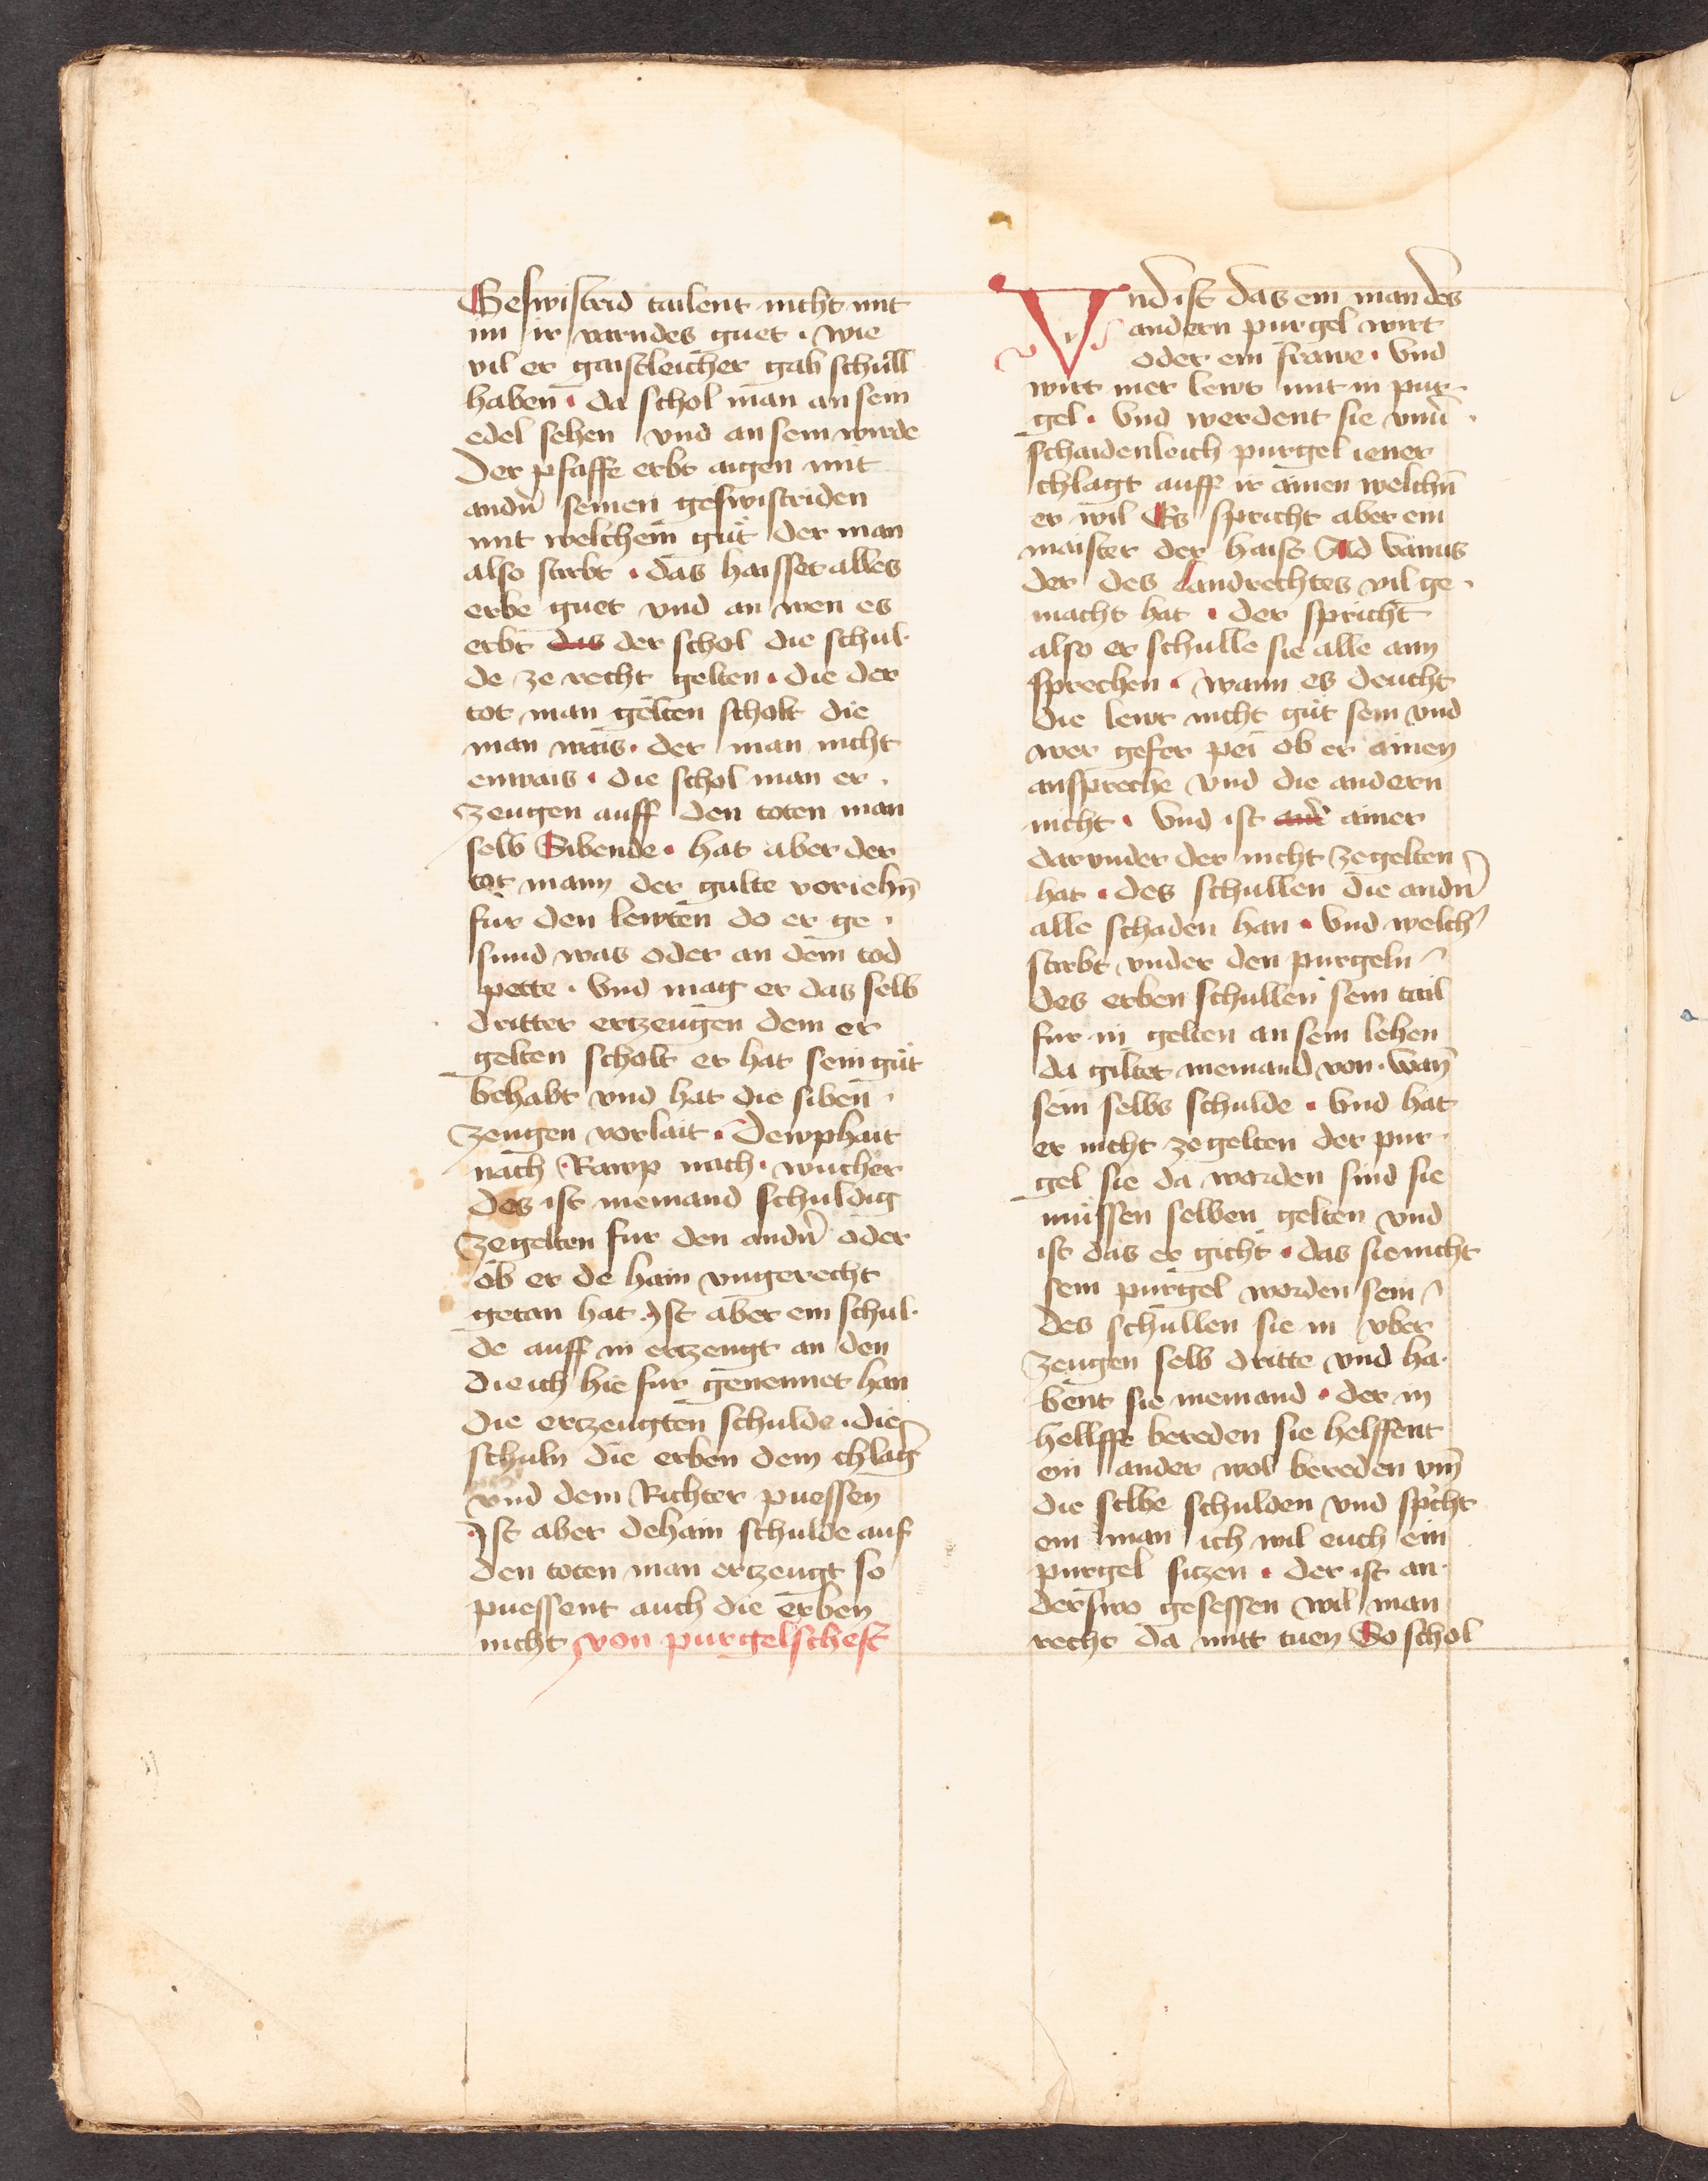 Geswistrid tailent nicht mit
im ir varndes guet · wie
vil er gaistleicher gab schull
haben · da schol man an sein
edel sehen vnd an sein wirde
Der pfaffe erbt aigen mit
andn̄ seinen geswistriden
mit welchem gůt der man
also starbt · das haisset alles
erbe guet vnd an wen es
erbt das der schol die schul·
de ze recht gelten · die der
tot man gelten scholt die
man wais · der man nicht
enwais · die schol man er·
zeugen auff den toten man
selb Sibende · hat aber der
tot mann der gulte veriehn̄
fur den lewten do er ge·
sund was oder an dem tod
pette · Vnd mag er das selb
dritter ertzeugen dem er
gelten scholt er hat sein gůt
behabt vnd hat die siben·
zeugen verlait · Dewphait
nach · Rawp nach · wucher
des ist niemand schuldig
zegelten fur den andn̄ oder
ob er de hain vngerecht
getan hat Ist aber ein schul·
de auff in ertzeugt an den
die ich hie fur genennet han
die ertzeugten schulde · die
schuln die erben dem chlaḡ
vnd dem Richter puessen
Ist aber dehain schulde auf
den toten man ertzeugt so
puessent auch die erben
nicht von purgelscheft
Vnd ist das ein man des
andern purgel wirt
oder ein frawe · Vnd
wirt mer lewt mit in pur·
gel · Vnd werdent sie vnū·
schaidenleich purgel iener
chlagt auff ir ainen welchn̄
er wil Es spricht aber ein
maister der haist Ald vanus
der des Landrechtes vil ge·
macht hat · der spricht
also er schulle sie alle ann
sprechen · wann es deucht
die lewt nicht gůt sein vnd
wer gefer pei ob er ainen
anspreche vnd die andern
nicht · Vnd ist and̄ ainer
darvnder der nicht zegelten
hat · des schullen die andn̄
alle schaden han · Vnd welch̄
starbt vnder den purgeln
des erben schullen sein tail
fur in gelten an sein lehen
da giltet niemand von · wan̄
sein selbs schulde · Vnd hat
er nicht ze gelten der pur·
gel sie da worden sind sie
můssen selben gelten vnd
ist das er gicht · das sie nicht
sein purgel worden sein
des schullen sie in vber
zeugen selb dritte vnd ha·
bent sie niemand · der in
hellffe bereden sie helffent
ein ander wol bereden vm̄
die selbe schulden vnd sp̄cht
ein man ich wil euch ein
purgel sitzen · der ist an·
derswo gesessen wil man
recht da mitt tuen So schol